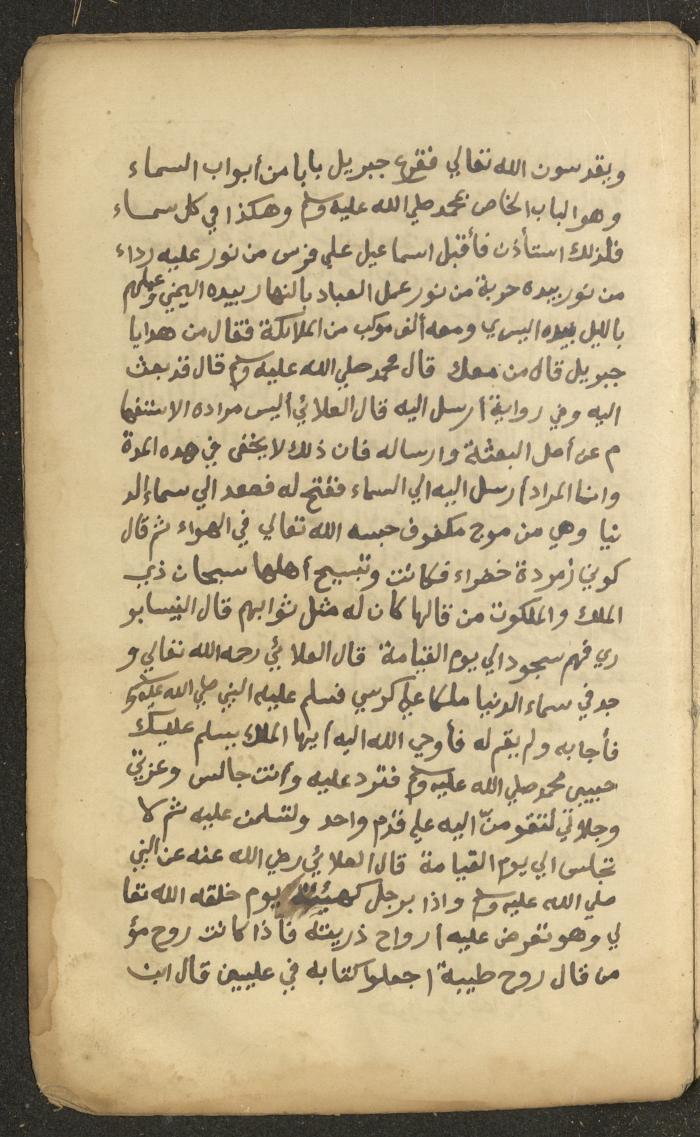 ويقدسون الله تعالي فقرع جبريل بابا من أبواب السماء
وهو الباب الخاص بمحمد صلي الله عليه وسلم وهكذا في كل سماء
فلذلك استأذن فأقبل اسماعيل علي فرس من نور عليه رداء
من نور بيده حربة من نور عمل العباد بالنهار بيده اليمني وعملهم
بالليل بيده اليسري ومعه ألف موكب من الملائكة فقال من هدايا
جبريل قال من معك قال محمد صلي الله عليه وسلم قال قد بعث
اليه وفي رواية أرسل اليه قال العلائي أليس مراده الاستفها
م عن أصل البعثة وارساله فان ذلك لا يخفى في هده المدة
وانما المراد أرسل اليه الي السماء ففتح له فصعد الي سماء الد
نيا وهي من موج مكفوف حبسه الله تعالي في الهواء ثم قال
كوني زمردة خضراء فكانت وتسبيح أهلها سبحان ذي
الملك والملكوت من قالها كان له مثل ثوابهم قال النيسابو
ري فهم سجود الي يوم القيامة قال العلائي رحمه الله تعالي و
جد في سماء الدنيا ملكا علي كرسي فسلم عليه النبي صلي الله عليه وسلم
فأجابه ولم يقم له فأوحي الله اليه أيها الملك يسلم عليك
حبيبي محمد صلي الله عليه وسلم فترد عليه وأنت جالس وعزتي
وجلالي لتقومنّ اليه علي قدم واحد ولتسلمن عليه ثم لا
تجلس الي يوم القيامة قال العلائي رضي الله عنه عن النبي
صلي الله عليه وسلم واذا برجل كهيئته يوم خلقه الله تعا
لي وهو تعرض عليه أرواح ذريته فأذا كانت روح مؤ
من قال روح طيبة اجعلوا كتابه في عليين قال ابن